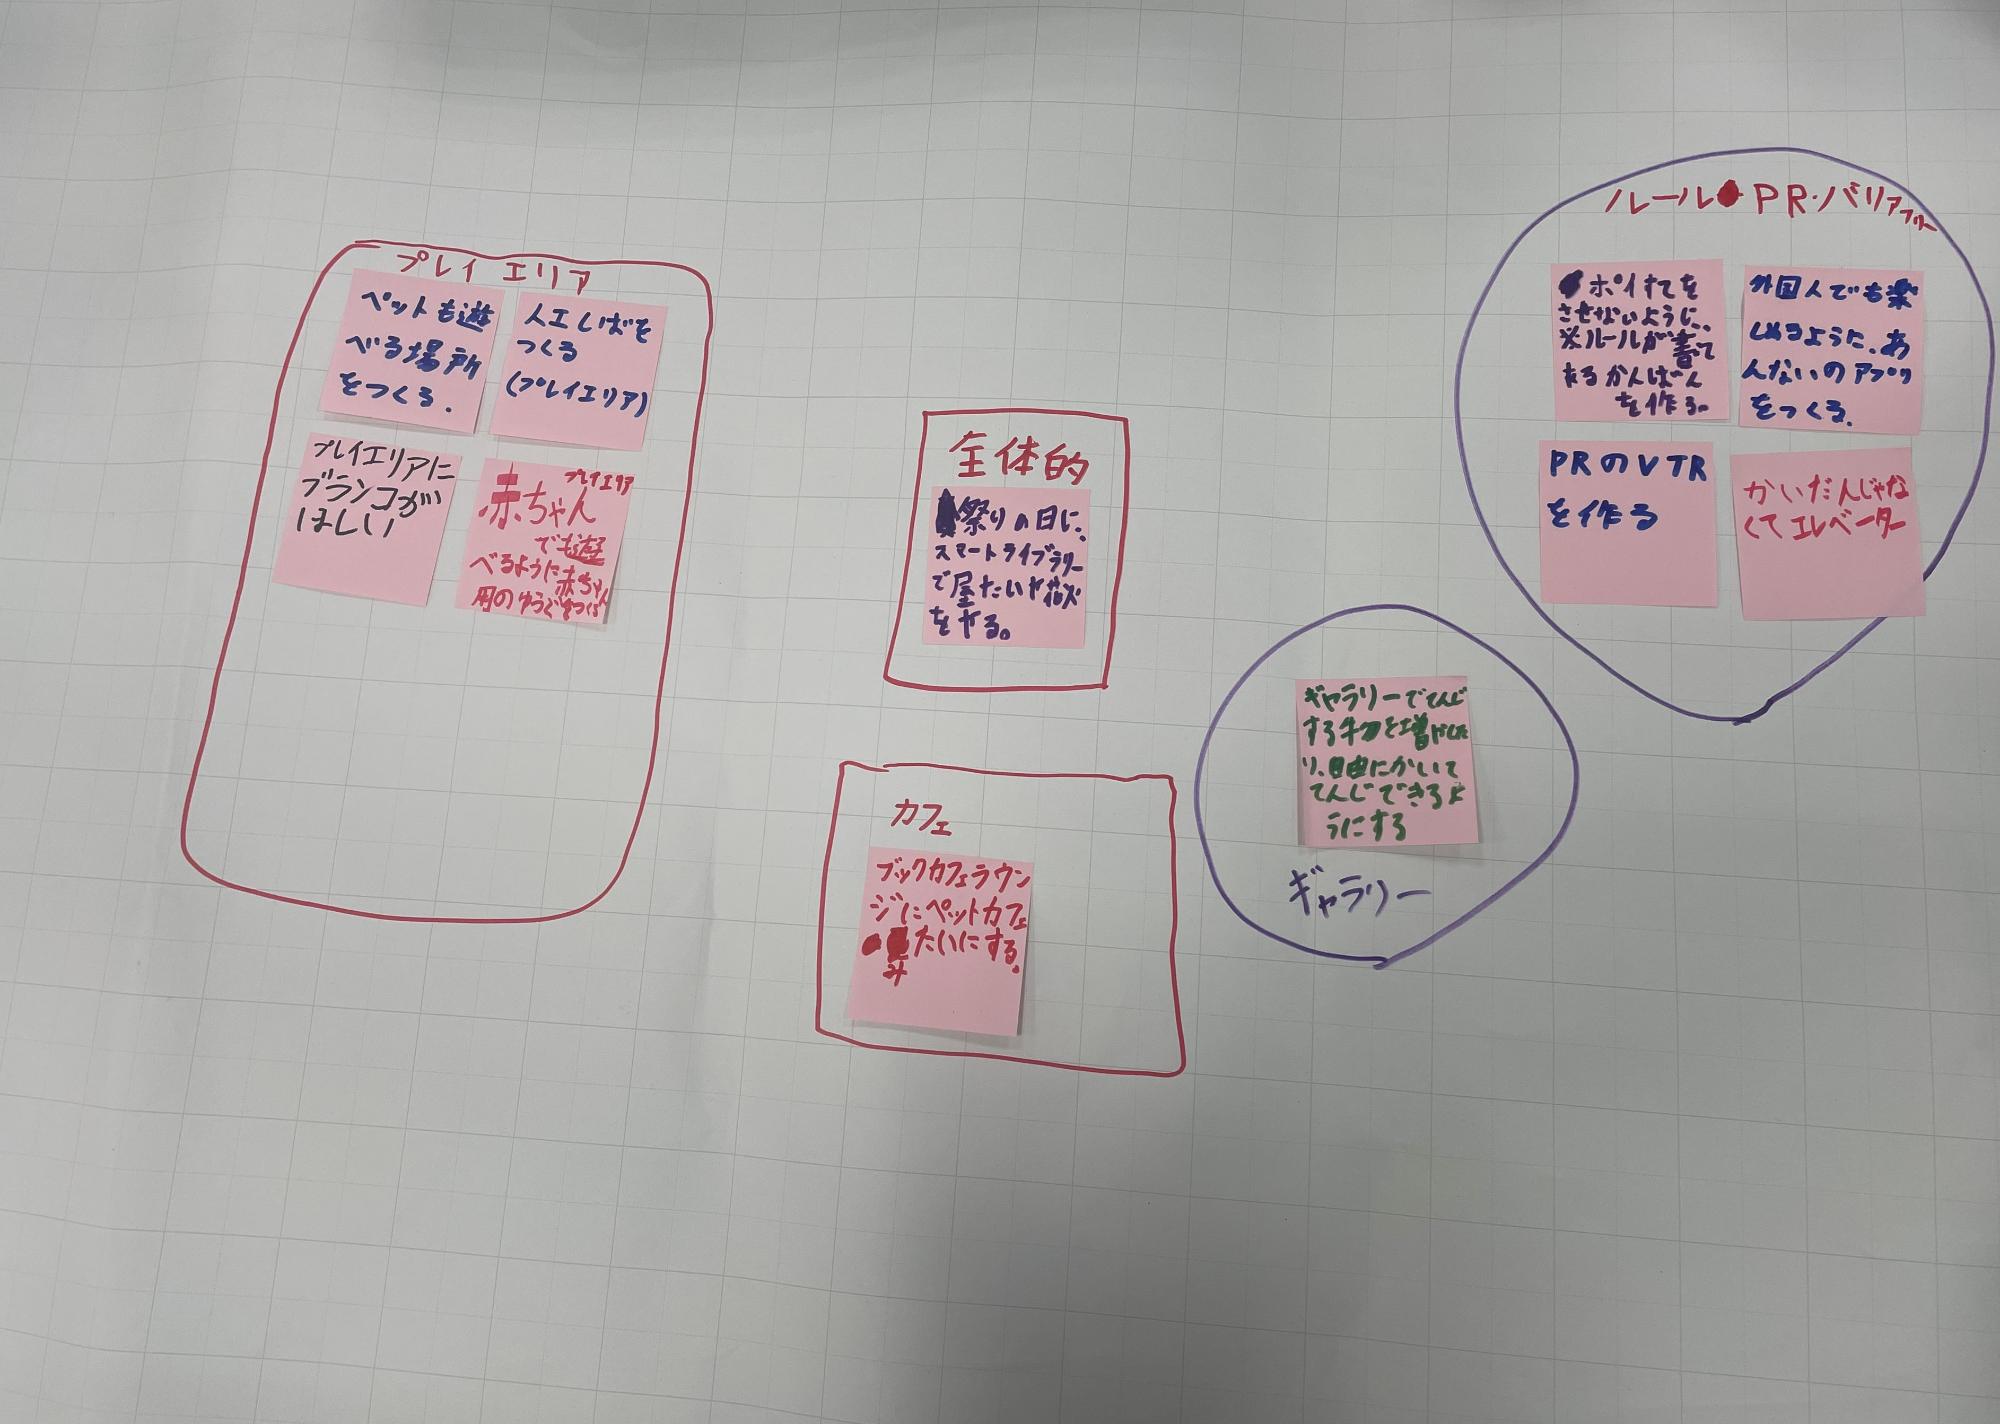 プレイエリア
ペットも遊
べる場所
をつくる.
人工しばを
つくる
(プレイエリア)
プレイエリアに
ブランコが
ほしい
プレイエリア
赤ちゃん
でも遊
べるように赤ちゃん
用のゆうぐをつくる
全体的
祭りの日に、
スマートライブラリー
で屋たいや花火
をやる。
カフェ
ブックカフェラウン
ジにペットカフェ
みたいにする.
ギャラリーでてんじ
する物を増やした
り、自由にかいて
てんじできるよ
うにする
ギャラリー
ルール PR・バリアフリー
ポイすてを
させないように、
※ルールが書いて
あるかんばん
を作る。
外国人でも楽
しめるように、あ
んないのアプリ
をつくる.
PRのVTR
を作る
かいだんじゃな
くてエレベーター